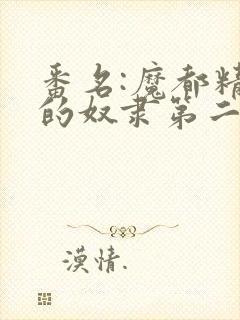 番名:魔都精
的奴隶第二
漠情.